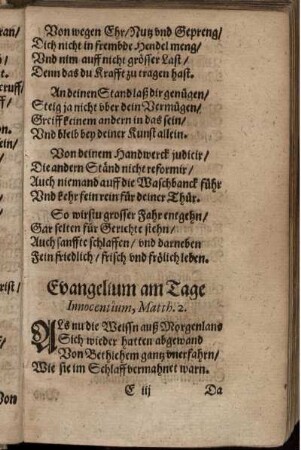 Von wegen Ehr/Nutz vnd Gepreng/
Dich nicht in frembde Hendel meng/
Vnd nim auff nicht grösser Last/
Denn das du Krafft zu tragen hast.
An deinen Stand laß dir genügen/
Steig ja nicht vber dein Vermügen/
Greiff keinem andern in das sein/
Vnd bleib bey deiner Kunst allein.
Von deinem Handwerck judicir/
Die andern Ständ nicht reformir/
Auch niemand auff die Waschbanck führ
Vnd kehr fein rein für deiner Thür.
So wirstu grosser Fahr entgehn/
Gar selten für Gerichte stehn/
Auch sanffte schlaffen/ vnd darneben
Fein friedlich/ frisch vnd frölich leben.
Evangelium am Tage
Innocentium, Matth. 2.
ALs nu die Weissn auß Morgenland
Sich wieder hatten abgewand
Von Bethlehem gantz vnerfahrn/
Wie sie im Schlaff vermahnet warn.
E iij
Da